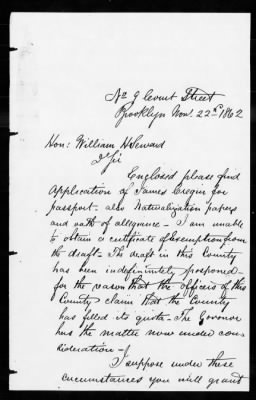 No 9 Court Street
Brooklyn Nov. 22nd 1862
Hon: William H Seward
Dr Sir
Enclosed please find
Application of James Cregin for
passport. also Naturalization papers
and oath of allegance - I am unable
to obtain a certificate of Exemption from
the draft - The draft in this County
has been indefinitely posponed -
for the reason that the officers of this
County claim that the County
has filled its quota - The Govenor
has the matter now under con=
sideration -
I suppose under these
circumstances you will grant